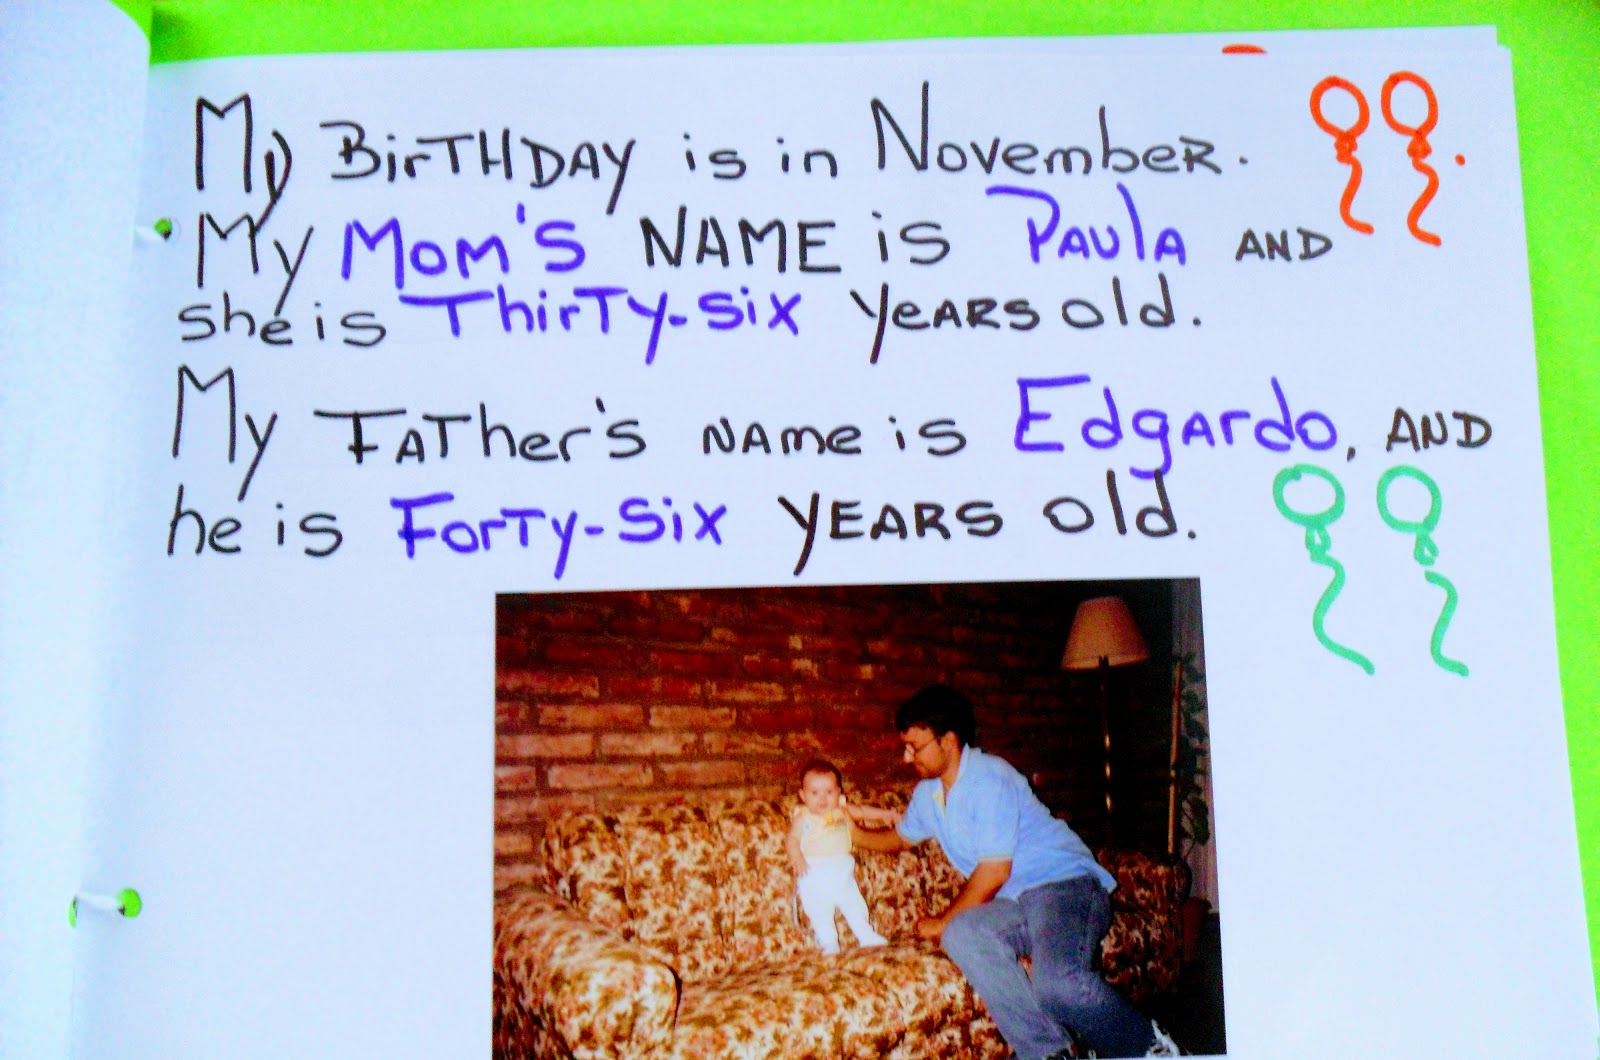 My BirTHDAY is in NovembeR.
My Mom's NAME is Paula AND
she is ThirTy-six years old.
My FATher's NAme is Edgardo, AND
he is Forty-six YEARS old.